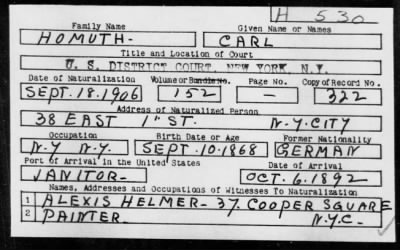 H 530
Family Name Given Name or Names
HOMUTH- CARL
Title and Location of Court
U. S. DISTRICT COURT, NEW YORK, N.Y.
Date of Naturalization Volume or Bundle No. Page No. Copy of Record No.
SEPT. 18. 1906 152 — 322
Address of Naturalized Person
38 EAST 1" ST. N.Y. CITY
Occupation Birth Date or Age Former Nationality
N.Y N.Y. SEPT. 10. 1868 GERMAN
Port of Arrival in the United States Date of Arrival
JANITOR- OCT. 6. 1892
Names, Addresses and Occupations of Witnesses To Naturalization
1 ALEXIS HELMER- 37 COOPER SQUARE
2 PAINTER N.Y.C-